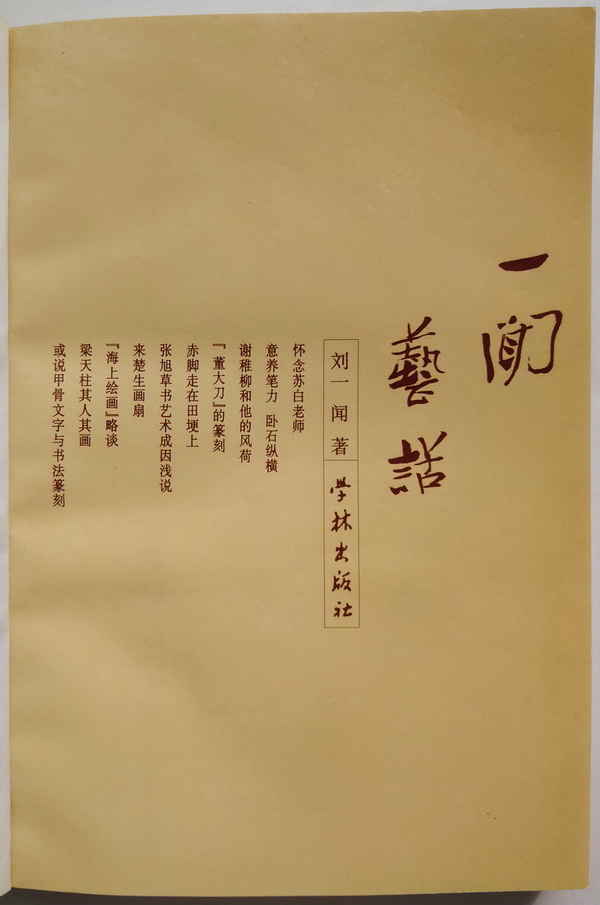 一闻
藝話
刘一闻 著
学林出版社
怀念苏白老师
意养笔力 卧石纵横
谢稚柳和他的风荷
『董大刀』的篆刻
赤脚走在田埂上
张旭草书艺术成因浅说
来楚生画扇
『海上绘画』略谈
梁天柱其人其画
或说甲骨文字与书法篆刻